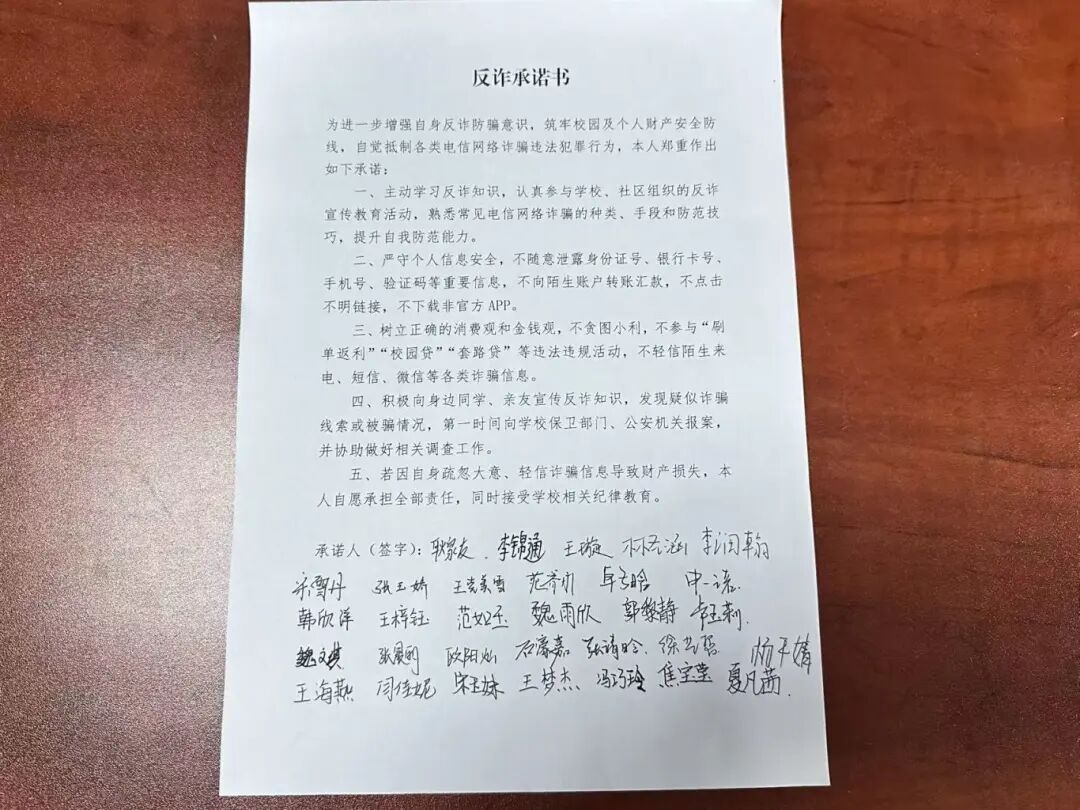 反诈承诺书
为进一步增强自身反诈防骗意识，筑牢校园及个人财产安全防
线，自觉抵制各类电信网络诈骗违法犯罪行为，本人郑重作出
如下承诺：
一、主动学习反诈知识，认真参与学校、社区组织的反诈
宣传教育活动，熟悉常见电信网络诈骗的种类、手段和防范技
巧，提升自我防范能力。
二、严守个人信息安全，不随意泄露身份证号、银行卡号、
手机号、验证码等重要信息，不向陌生账户转账汇款，不点击
不明链接，不下载非官方 APP。
三、树立正确的消费观和金钱观，不贪图小利，不参与“刷
单返利”“校园贷”“套路贷”等违法违规活动，不轻信陌生来
电、短信、微信等各类诈骗信息。
四、积极向身边同学、亲友宣传反诈知识，发现疑似诈骗
线索或被骗情况，第一时间向学校保卫部门、公安机关报案，
并协助做好相关调查工作。
五、若因自身疏忽大意、轻信诈骗信息导致财产损失，本
人自愿承担全部责任，同时接受学校相关纪律教育。
承诺人（签字）： 李锦通 王璇 李润翰
宋雪丹 张玉娇
韩欣洋 王梓钰 范如丕 魏雨欣 郭黎静
欧阳灿 石濠嘉 张靖晗
王海燕 闫佳妮 宋玉妹 王梦杰 冯巧玲 焦宝莹 夏凡茜